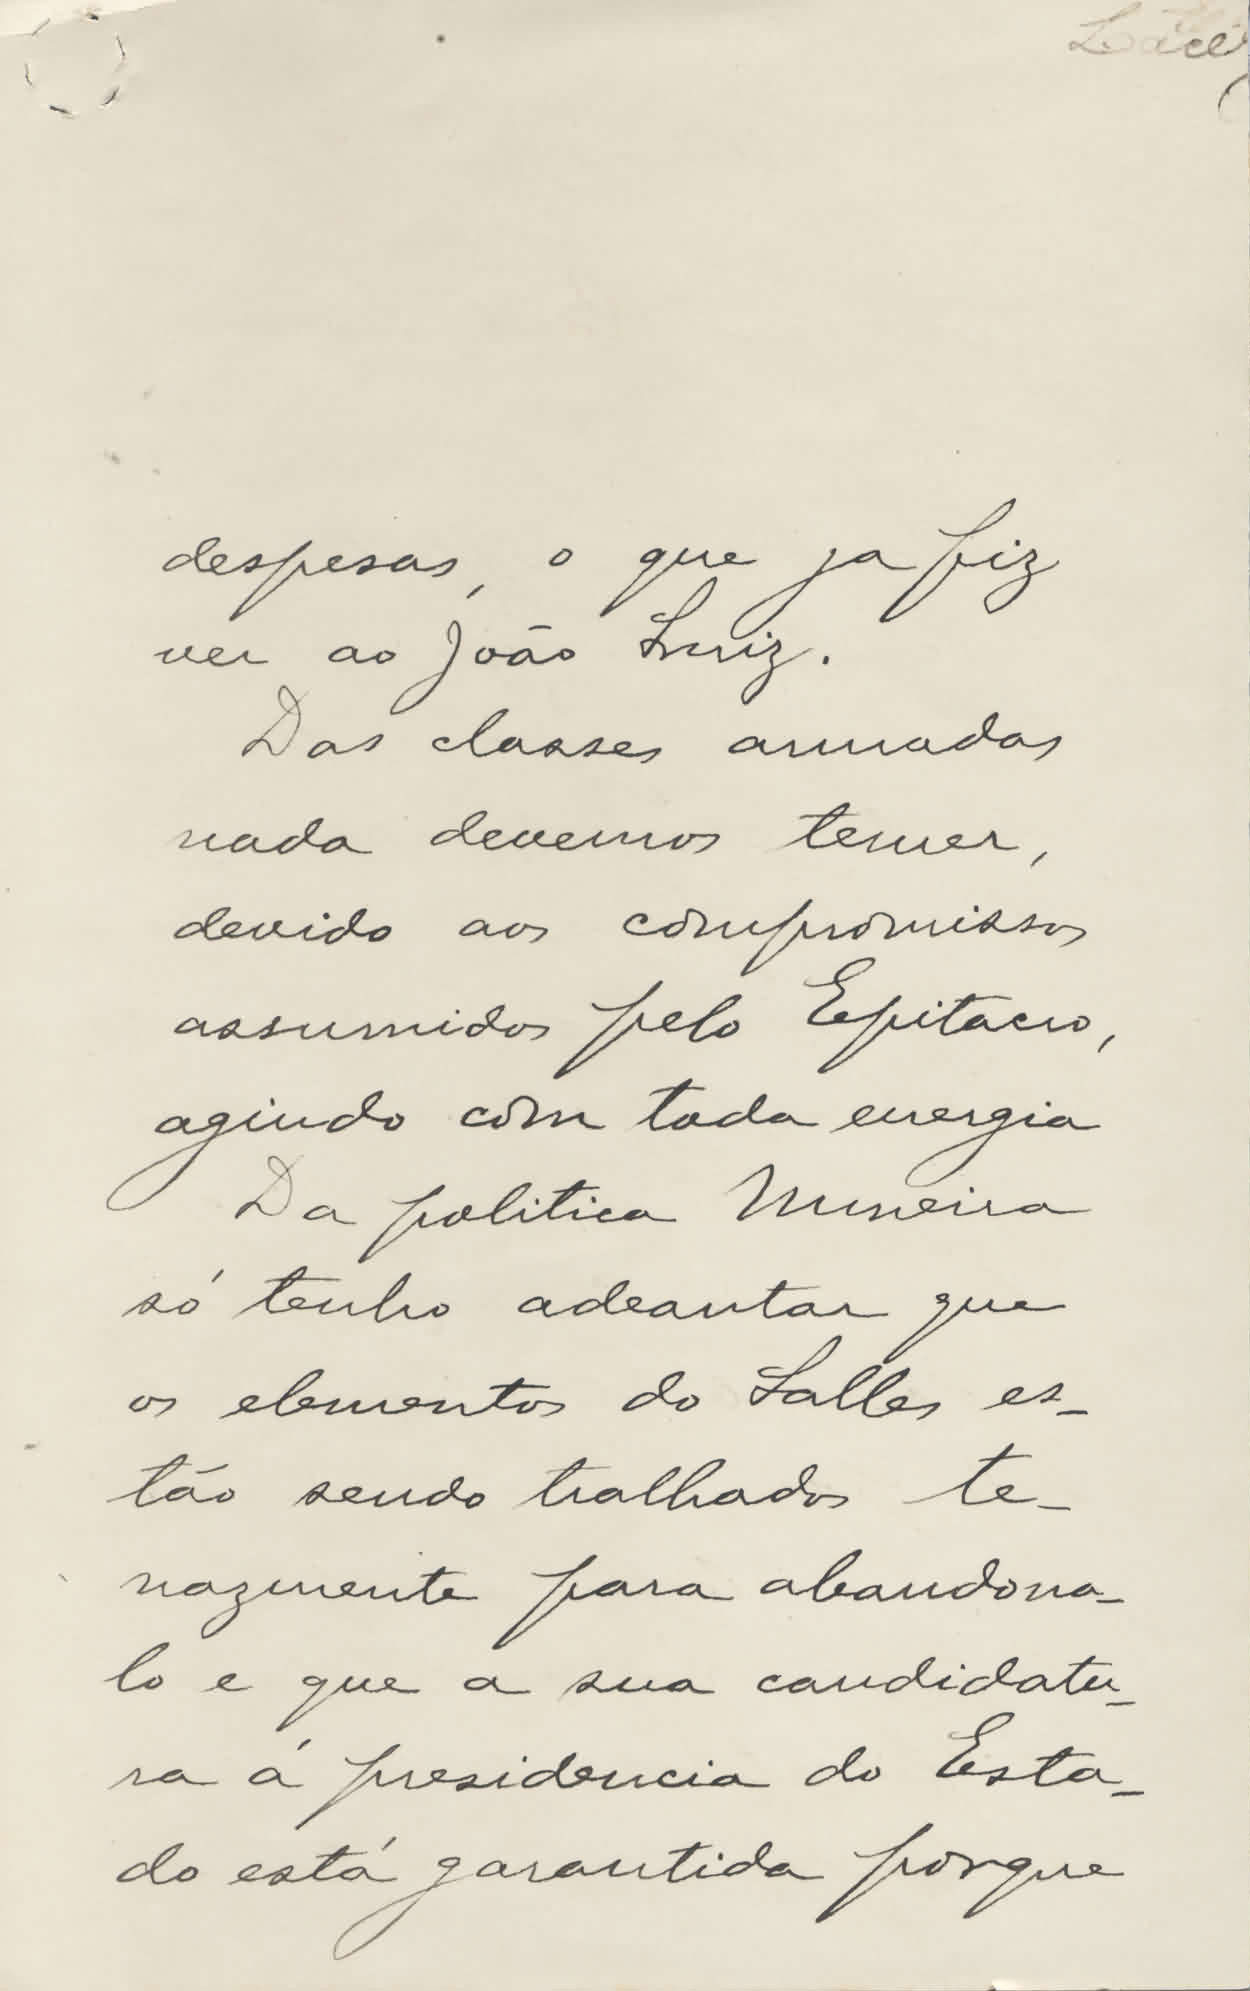 despesas, o que ja fiz
ver ao João Luiz.
Das classes armadas
nada devemos temer,
devido aos compromissos
assumidos pelo Epitacio,
agindo com toda energia
Da politica Mineira
só tenho adeantar que
os elementos do Salles es-
tão sendo tralhados te-
nazmente para abandona-
lo e que a sua candidatu-
ra á presidencia do Esta-
do está garantida porque